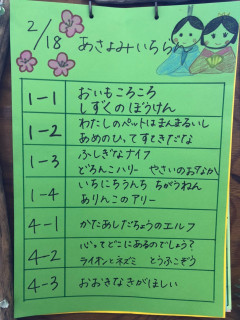 2/18 あさよみいちらん
1-1 おいもころころ
しずくのぼうけん
1-2 わたしのペットはまんまるいし
あめのひってすてきだな
1-3 ふしぎなナイフ
どろんこハリー やさいのおなか
1-4 いちにちうんち ちがうねん
ありんこのアリー
4-1 かたあしだちょうのエルフ
4-2 心ってどこにあるのでしょう?
ライオンとネズミ とうふこぞう
4-3 おおきなきがほしい